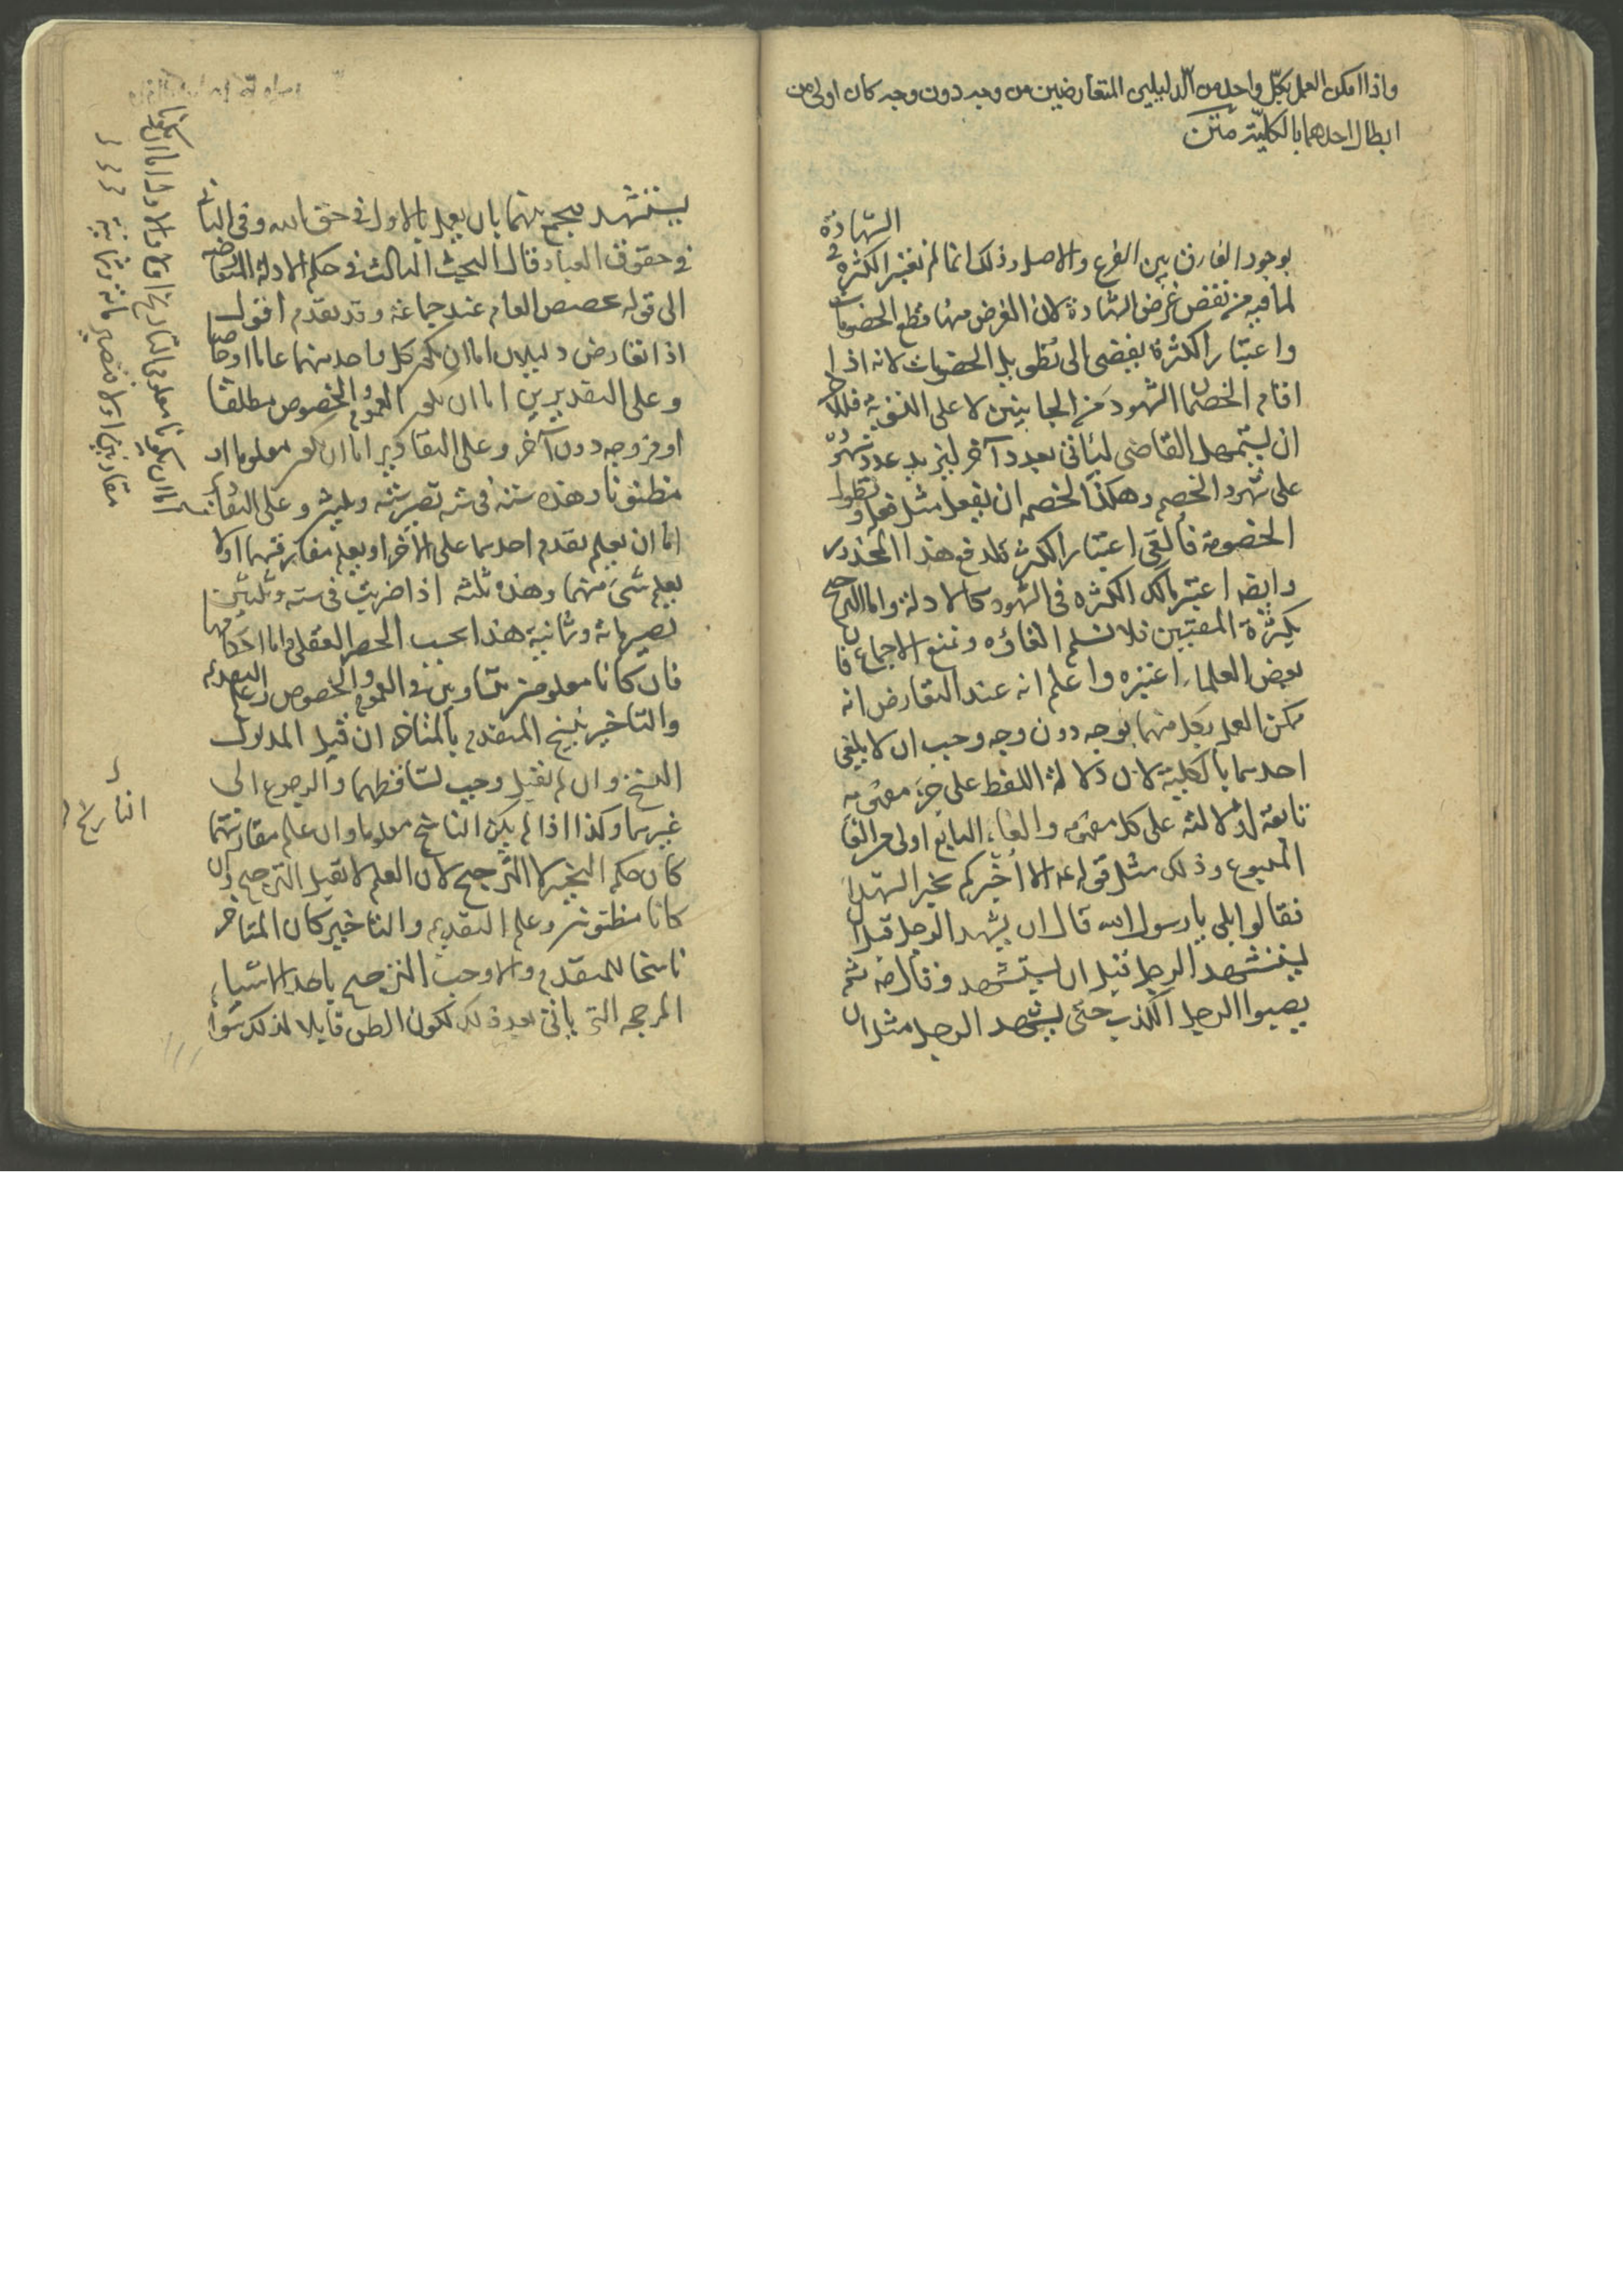 واذا امكن العمل بكل واحد من الدليلين المتعارضين من وجه دون وجه كان اولى من
ابطال احدهما بالكلية متن
بوجود الفارق بين الفرع والاصل وذلك انما لم نعتبر الكثرة في الشهادة
لما فيه من نقض غرض الشهادة لان الغرض منها قطع الخصومات
واعتبار الكثرة يفضى الى تطويل الخصومات لانه اذا
اقام الخصمان الشهود من الجانبين لا على السوية فللآخر
ان يستمهل القاضى ليأتى بعدد آخر ليزيد عدد شهوده
على شهود الخصم وهكذا لخصمه ان يفعل مثل فعله وتطول
الخصومة فألغى اعتبار الكثرة لدفع هذا المحذور
وايضا اعتبر مالك الكثرة فى الشهود كالادلة واما الترجيح
بكثرة المفتيين فلا نسلم الغاؤه ونمنع الاجماع فان
بعض العلماء اعتبره واعلم انه عند التعارض انه
يمكن العمل بكل منهما بوجه دون وجه وجب ان لا يلغى
احدهما بالكلية لان دلالة اللفظ على جزء مفهومه
تابعة لدلالته على كل مفهومه والغاء التابع اولى من الغاء
المتبوع وذلك مثل قوله عم الا اخبركم بخير الشهداء
فقالوا بلى يا رسول الله قال ان يشهد الرجل قبل ان
يستشهد الرجل قبل ان يستشهد وقال ثم
يفشوا الكذب حتى يشهد الرجل مثل ان
يستشهد فيجمع بينهما بان يعمل بالاول فى حق الله وفى الثانى
فى حقوق العباد قال البحث الثالث فى حكم الادلة المتعارضة
الى قوله خصص العام عند جماعة وقد تقدم اقول
اذا تعارض دليلان اما ان يكون كل واحد منهما عاما او خاصا
وعلى التقديرين اما ان يكون العموم والخصوص مطلقا
او من وجه دون آخر وعلى التقادير اما ان يكون معلوما او
مظنونا وهذه ستة فى ستة تصير ستة وثلثين وعلى التقادير
اما ان يعلم تقدم احدهما على الآخر او يعلم مقارنتهما او لا
يعلم شىء منهما وهذه ثلثة اذا ضربت فى ستة وثلثين
تصير مائة وثمانية هذا بحسب الحصر العقلى واما احكامها
فان كانا معلومين متساويين فى العموم والخصوص وعلم التقديم
والتاخير نسخ المتقدم بالمتاخر ان قبل المدلول
النسخ وان لم يقبل وجب تساقطهما والرجوع الى
غيرهما وكذا اذا لم يكن الناسخ معلوما وان علم مقارنتهما
كان حكم التخيير لا الترجيح لان العلم لا يقبل الترجيح وان
كانا مظنونين وعلم التقديم والتاخير كان المتاخر
ناسخا للمتقدم والا وجب الترجيح باحد الاشياء
المرجحة التى ياتى بعد ذلك لكون الظن قابلا لذلك سواء
اما ان يكونا معلومى التاريخ او لا
مقارنين او لا فتصير مائة وثمانية
التاريخ